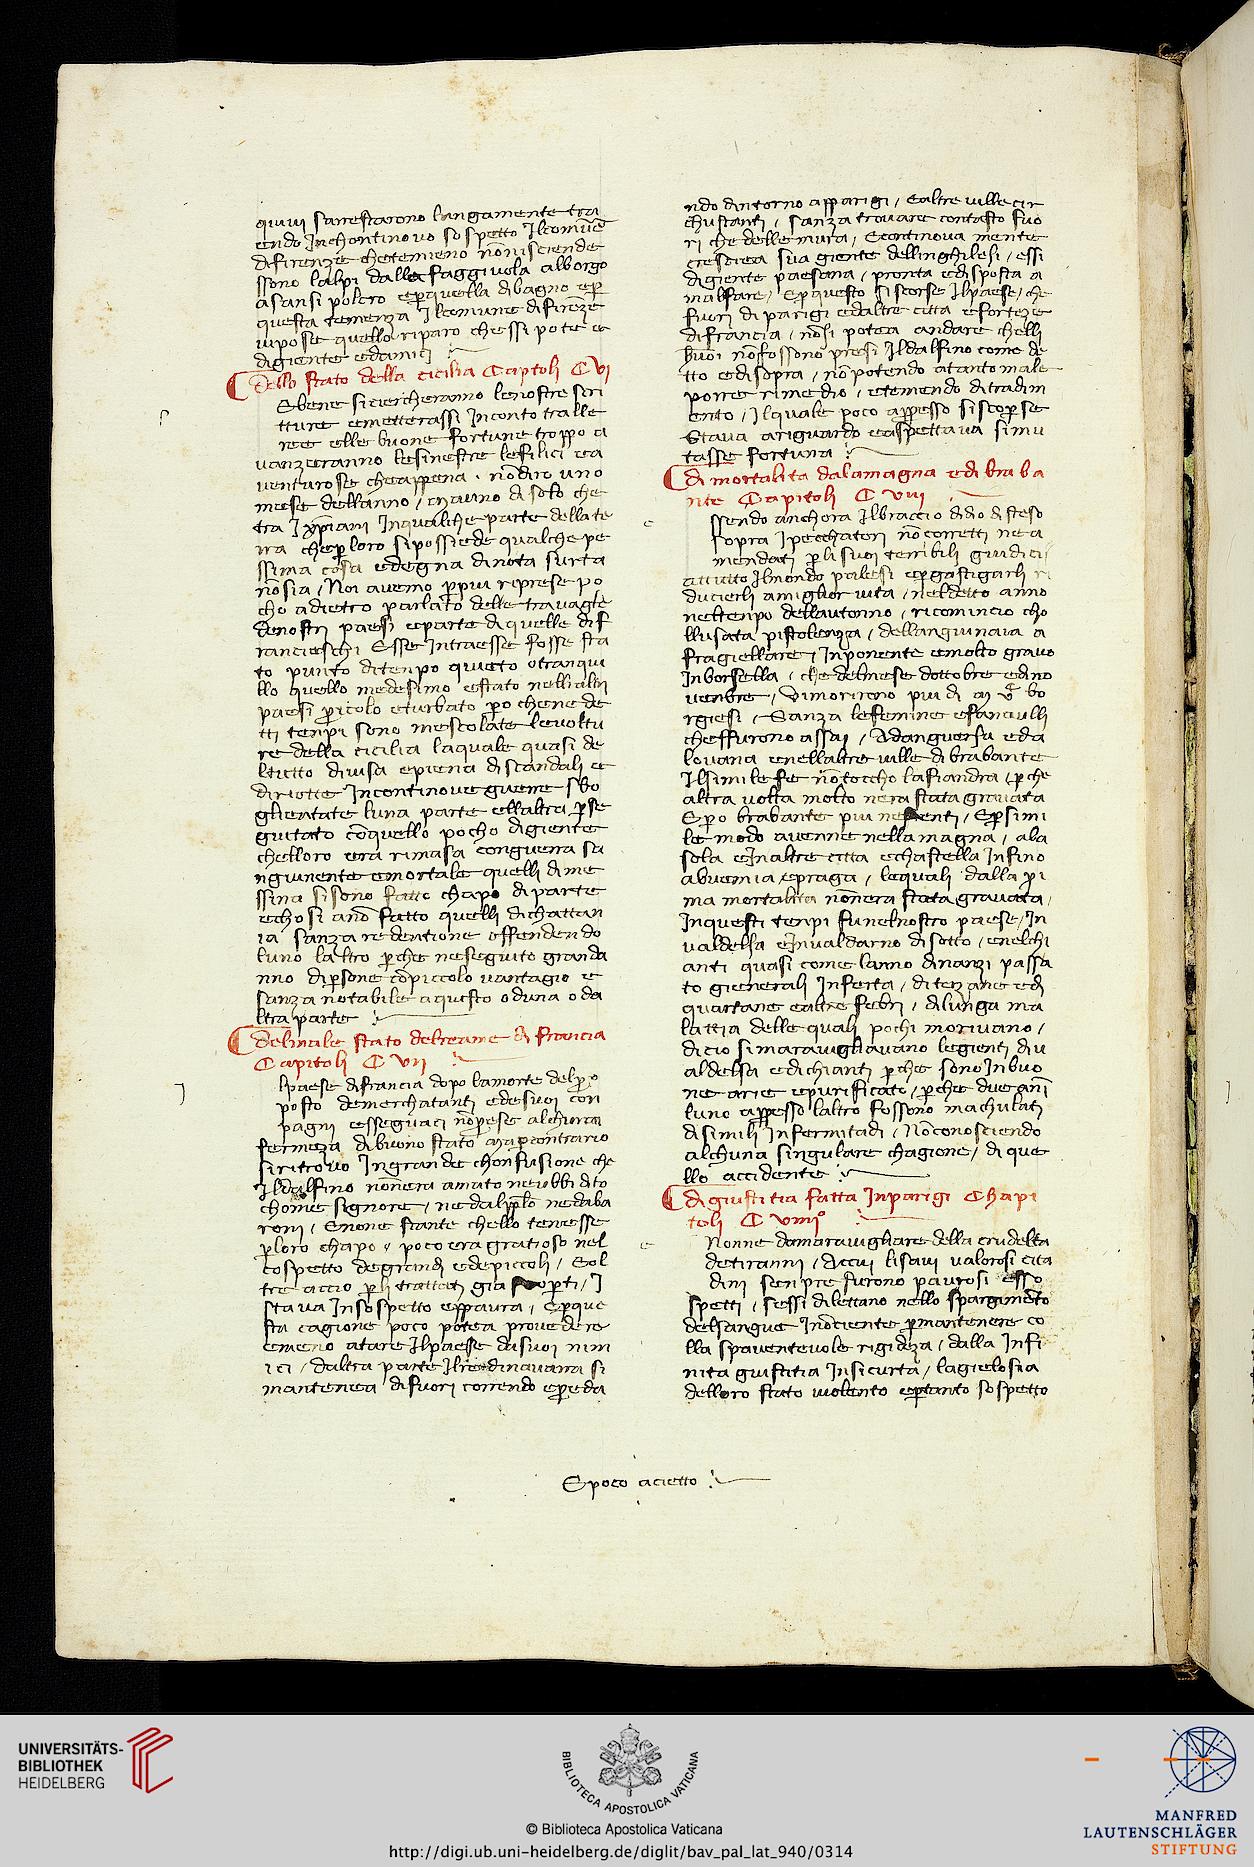 quivi sarrestarono lungamente tra
endo Inchontinovo sospetto Ilcomūe
difirenze chetemieno nōnisciende
ssono lalpi dalla faggivola alborgo
asansi polcro eꝑquella dibagno eꝑ
questa temenza Ilcomune difirēze
vipose quello riparo chessi pote e
digiente edamici
Dello stato della cicilia Capitoli C VI
Ebene siciercheranno lenostre scri
tture emetterassi Inconto tralle
ree elle buone fortune troppo a
vanzeranno lesinestre lefilici ea
venturose cheappena . nōdico uno
mese dellanno / mauno disolo che
tra Ixp̄iani Inqualche parte della te
rra cheꝑloro sipossiede qualche pe
ssima cosa edegna dinota surta
nōsia / Noi avemo ꝑpiu riprese po
cho adietro parlato delle travaglie
denostri paesi eparte diquelle dif
rancieschi Esse Intraesse fosse sta
to punto ditenpo quieto otranqui
llo quello medesimo estato nellialtri
paesi ꝑicolo eturbato ꝑo chene de
tti tenpi sono mescolate levoltu
re della cicilia laquale quasi de
ltutto divisa epiena discandali e
diriotte Incontinove guerre sto
gliientate luna parte ellaltra ꝑse
guitato cōquello pocho digiente
chelloro era rimasa conguerra sa
nguinente emortale quelli dime
ssina sisono fatto chapo diparte
echosi anō fatto quelli dichattan
ia sanza redentione offendendo
luno laltro ꝑche neseguito granda
nno diꝑsone cōpiccolo vantagio e
sanza notabile aquisto oduna oda
ltra parte
Delmale stato delreame di francia
Capitoli C VII
Ipaese difrancia dopo lamorte delꝓ
posto demerchatanti edesuoi con
pagni esseguaci nōprese alchuna
fermeza dibuono stato mapcontrario
siritrovo Ingrande chonfusione che
Ildalfino nonera amato neubbidito
chome signore / nedalpplo nedaba
roni / Enone stante chello tenesse
ꝑloro chapo / pocoera gratioso nel
cospetto degrandi edepiccoli / Eol
tre accio ꝑli trattati gia scoꝑti / I
stava Insospetto eppaura / Eꝑque
sta cagione poco potea provedere
emeno atare Ilpaese dasuoi nim
ici / daltra parte Ilredinavarra si
mantenea difuori correndo eꝑeda
ndo dintorno apparigi / Ealtre ville cir
chustanti / sanza trovare contasto fuo
ri che dellemura / Econtinova mente
crescieа sua giente dellinghilesi / essi
digiente paesana / pronta edisposta a
malfare / Eꝑquesto siscorse Ilpaese / che
fuori di parigi edaltre citta efortezze
difrancia / nōsi potea andare chelli
buoi nōfossono presi Ildalfino come de
tto edisopra / nōpotendo atanto male
porre rimedio / etemendo ditradim
ento / Ilquale poco appesso siscoꝑse
Stava ariguardo easpettava simu
tasse fortuna
Di mortalita dalamagna edi braba
nte Capitoli C VIII
Ssendo anchora Ilbraccio didio disteso
sopra Ipecchatori nōcorretti nea
mendati ꝑlisuoi terribili giudici
attutto Ilmondo palesi eꝑgastigarli ri
ducierli amiglior vita / neldetto anno
neltenpo dellautonno / ricomincio cho
llusata pistolenza / dellanguinaia a
fragiellare Inponente emolto gravo
Inborsella / chedelmese dottobre edino
venbre / Vimorirono piu di bo
rgiesi / Sanza lefemine efanciulli
cheffurono assai / Adanguersa eda
lovana enellaltre ville dibrabante
Ilsimile fe nōtoccho lafiandra / ꝑche
altra volta molto nera stata gravata
Eꝑo brabante piu / Eꝑsimi
le modo avenne nellamagna / aba
sola eInaltre citta echastella Infino
abuemia epraga / lequali dalla pri
ma mortalita nonera stata gravata /
Inquesti tenpi funelnostro paese / In
valdelsa eInvaldarno disotto / enelchi
anti quasi come lanno dinanzi passa
to gienerali Inferta / diterzane edi
quartane ealtre febri / dilunga ma
lattia delle quali pochi morivano /
dicio simaravigliavano legienti div
aldelsa edichianti ꝑche sonoInbuo
ne arie epurificate / ꝑche due anni
luno appesso laltro fossono machulati
disimili Infermitadi / Nōconosciendo
alchuna singulare chagione / di que
llo accidente
Di giustitia fatta Inparigi Chapi
toli C VIIII
Nonne damaravigliare della crudelta
detiranni / Accui lisavi valorosi cita
dini senpre furono paurosi esso
spetti / sessi dilettano nello spargimēto
delsangue Inociente ꝑmantenere co
lla spaventevole rigideza / dalla Infi
nita giustitia Insicurta / lagielosia
delloro stato violento eꝑtanto sospetto
Epoco acietto
UNIVERSITÄTS-
BIBLIOTHEK
HEIDELBERG
BIBLIOTECA APOSTOLICA VATICANA
© Biblioteca Apostolica Vaticana
http://digi.ub.uni-heidelberg.de/diglit/bav_pal_lat_940/0314
MANFRED
LAUTENSCHLÄGER
STIFTUNG